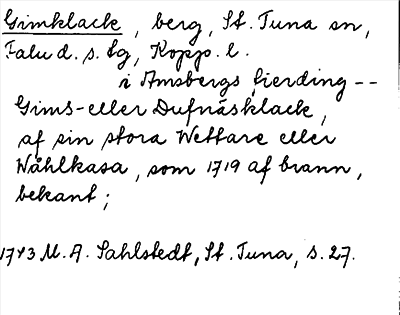 Gimklack, berg, St. Tuna sn,
Falu d. s. lg, Kopp. l.
i Amsbergs fierding --
Gims- eller Dufnäsklack,
af sin stora Wettare eller
Wåhlkasa, som 1719 af brann,
bekant;
1743 M. A. Sahlstedt, St. Tuna, s. 27.